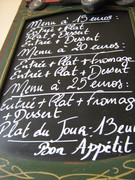 Menu à 15 euros:
Entrée + Plat
Plat + Dessert
Entrée + Dessert
Menu à 20 euros:
Entrée + Plat + fromage
Entrée + Plat + Dessert
Menu à 25 euros:
Entrée + Plat + fromage
+ Dessert
Plat du Jour: 13 eur
Bon Appétit